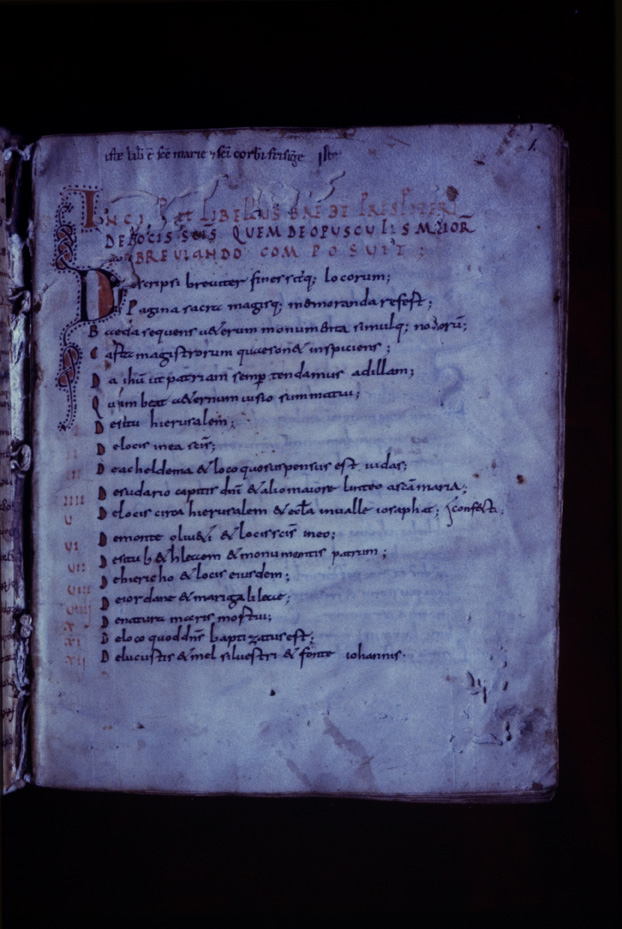 iste lib̄ ē scē marie ⁊ scī corbiniani frisinge iste
1.
INCIPIT LIBELLUS BEDE PRESPITERI
DE LOCIS SCIS QUEM DE OPUSCULIS MAIOR
BREUIANDO COMPOSUIT;
Descripsi breuiter fines sitq; locorum;
Pagina sacra magis q; memoranda refert;
Baeda sequens u&erum monumenta simulq; nouorum;
Carta magistrorum quae son& inspiciens;
Da ihū ut patriam semp tendamus ad illam;
Quam beat &ernum uisio summa tui;
De situ hierusalem;
De locis in ea scis;
De acheldema & loco quo suspensus est iudas;
II
III De sudario capitis dnī & alio maiore linteo a scā maria;
IIII De locis circa hierusalem & ecla in ualle iosaphat; confecti
U De monte oliu&i & locis scīs in eo;
UI De situ b&hleem & monumentis patrum;
UII De hiericho & locis eiusdem;
UIII De iordane & mari galileae;
De natura maris mortui;
De loco quo dnī baptizatus est;
De lucustis & mel siluestri & fonte iohannis.